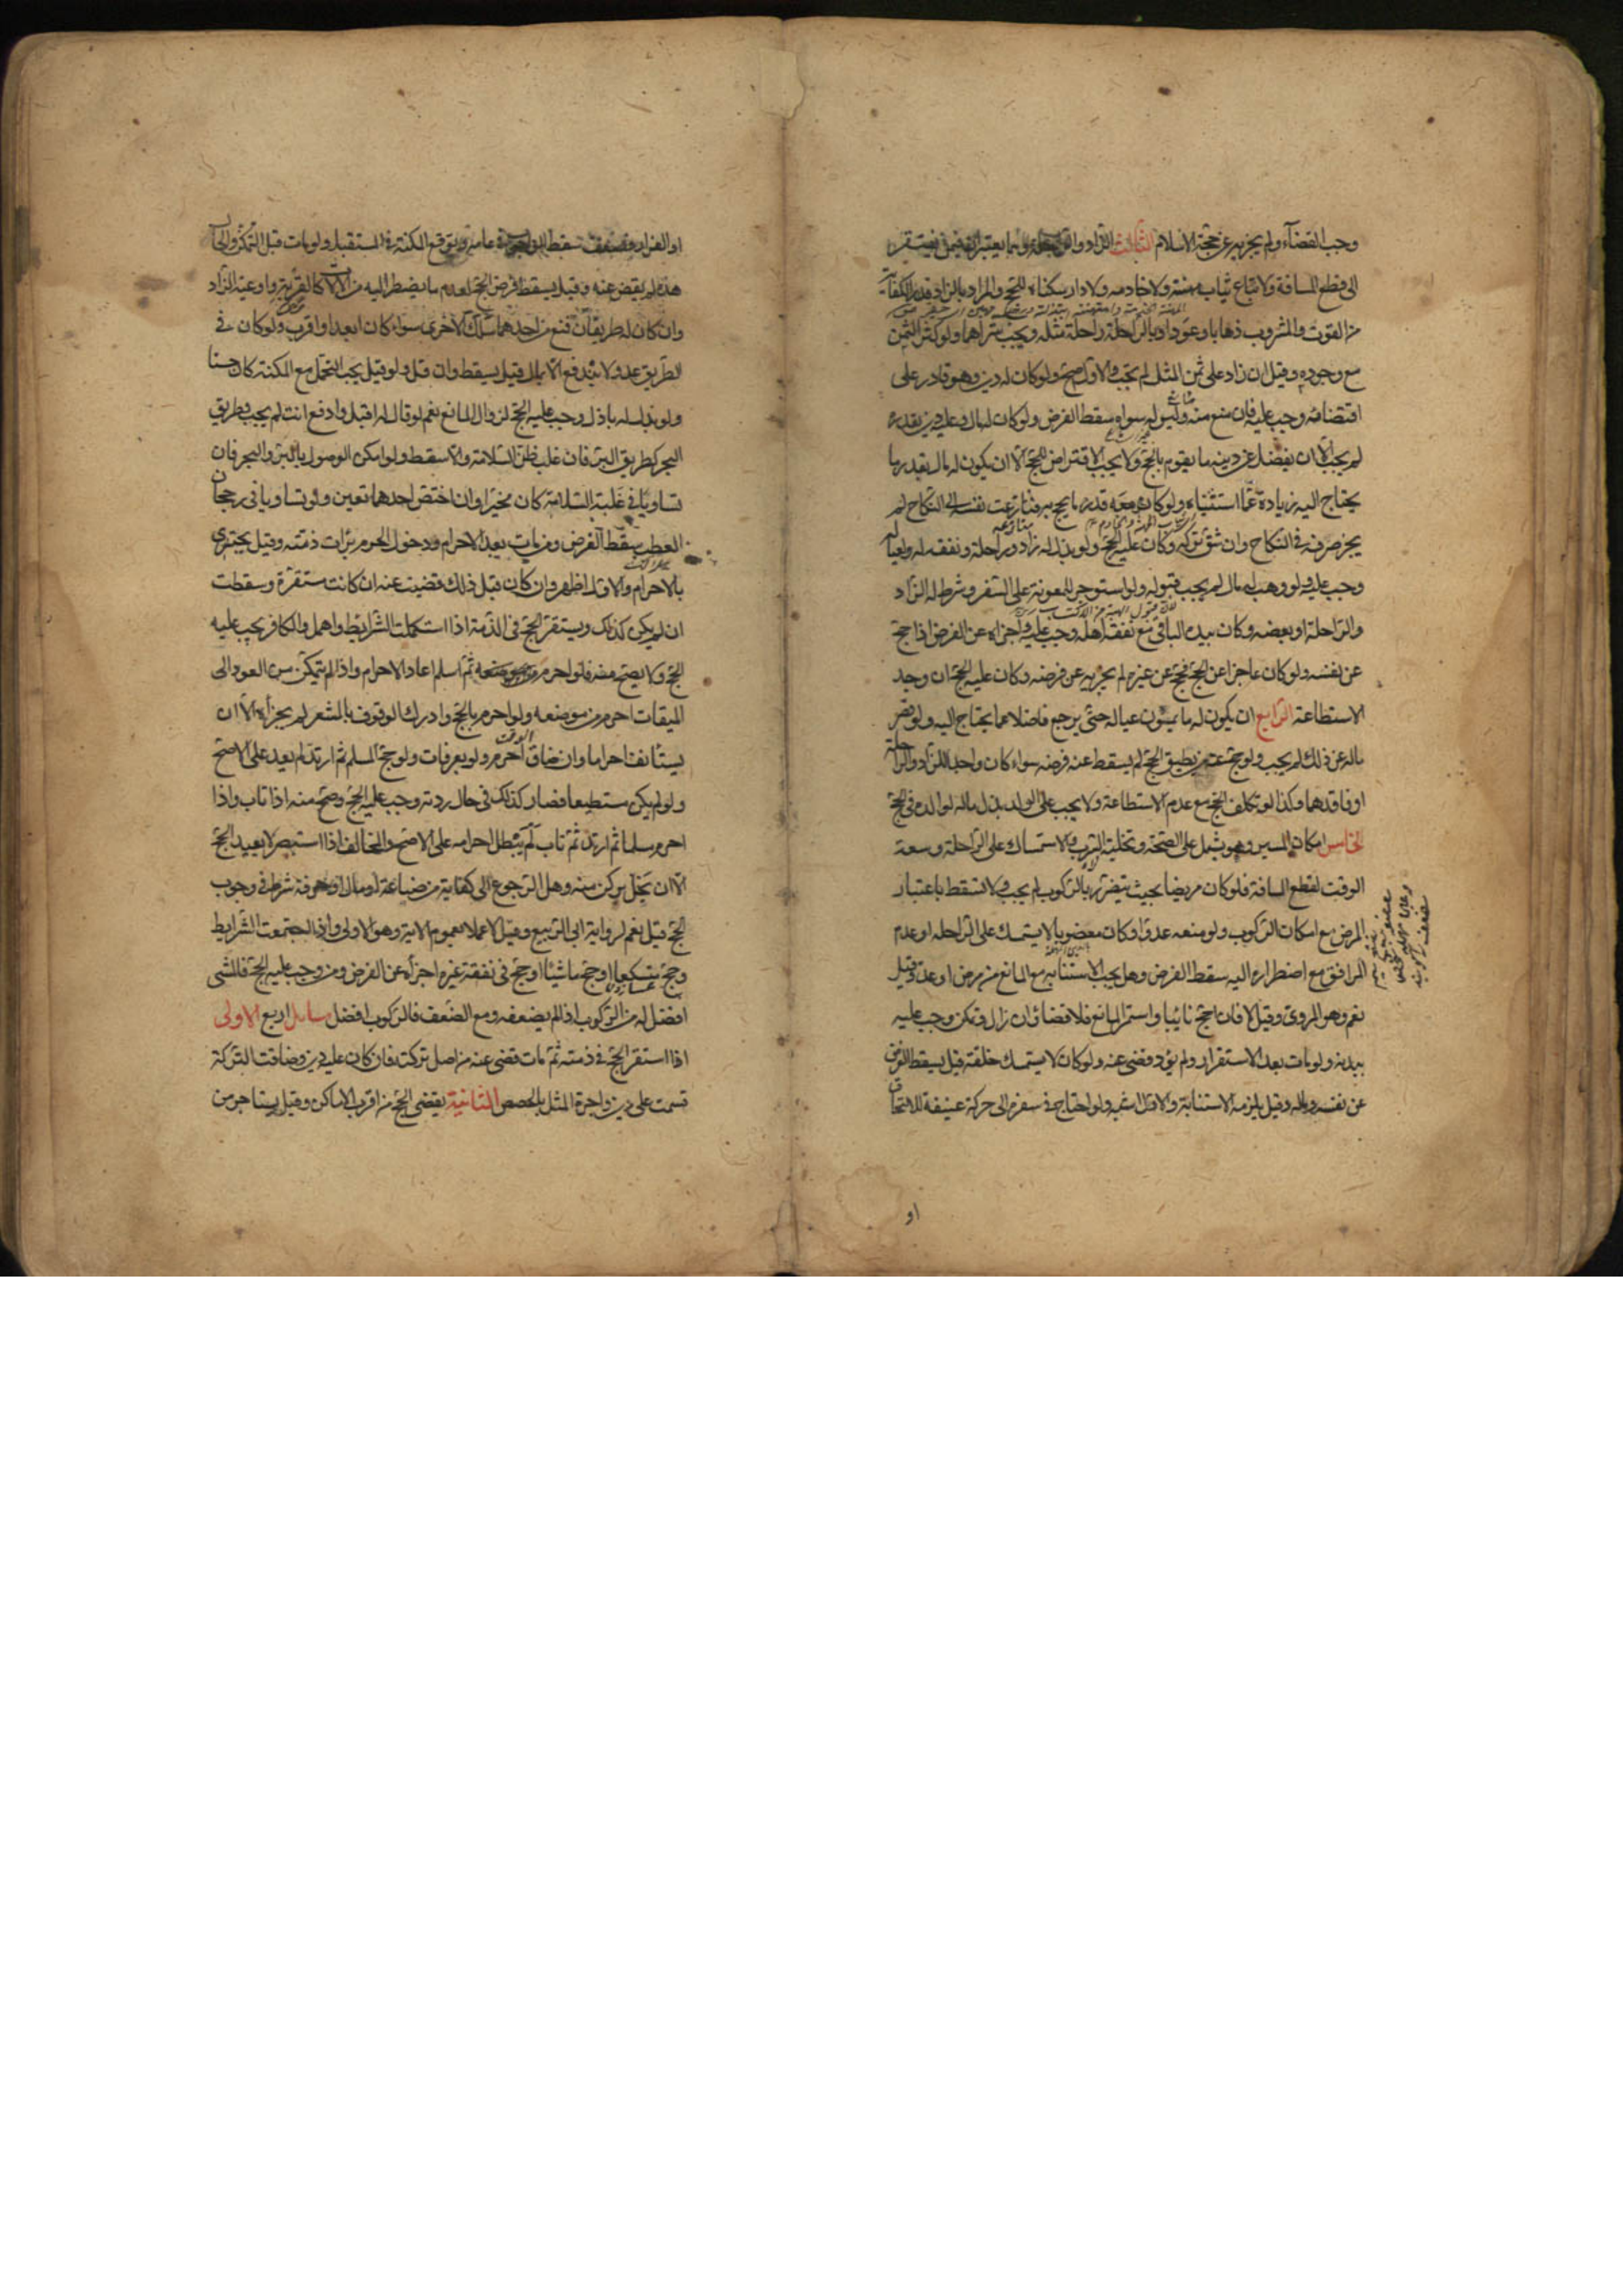 وجب القضاء ولم يجزيه عن حجة الاسلام الثالث الزاد والراحلة وهما يعتبران فيمن يفتقر
الى قطع المسافة ولا تباع ثياب مهنته ولا خادمه ولا دار سكناه للحج والمراد بالزاد قدر الكفاية
من القوت والمشروب ذهابا وعودا وبالراحلة راحلة مثله ويجب شراهما ولو كثر الثمن
مع وجوده وقيل ان زاد على ثمن المثل لم يجب والاول اصح ولو كان له دين وهو قادر على
اقتضائه وجب عليه فان منع منه وليس له سواه سقط الفرض ولو كان له مال وعليه دين بقدره
لم يجب الا ان يفضل عن دينه ما يقوم بالحج ولا يجب الاقتراض للحج الا ان يكون له مال بقدر ما
يحتاج اليه زيادة عما استثنيناه ولو كان معه قدر ما يحج به فنازعت نفسه الى النكاح لم
يجز صرفه في النكاح وان شق تركه وكان عليه الحج ولو بذل له زاد وراحلة ونفقة له ولعياله
وجب عليه ولو وهب له مال لم يجب قبوله ولو استوجر للمعونة على السفر وشرط له الزاد
والراحلة او بعضه وكان بيده الباقي مع نفقة اهله وجب عليه واجزاه عن الفرض اذا حج
عن نفسه ولو كان عاجزا عن الحج فحج عن غيره لم يجزيه عن فرضه وكان عليه الحج ان وجد
الاستطاعة الرابع ان يكون له ما يمون عياله حتى يرجع فاضلا عما يحتاج اليه ولو قصر
ماله عن ذلك لم يجب ولو حج عنه من يطيق الحج لم يسقط عنه فرضه سواء كان واجد الزاد والراحلة
او فاقدهما وكذا لو تكلف الحج مع عدم الاستطاعة ولا يجب على الولد بذل ماله لوالده في الحج
الخامس امكان المسير وهو يشتمل على الصحة وتخلية السرب والاستمساك على الراحلة وسعة
الوقت لقطع المسافة فلو كان مريضا بحيث يتضرر بالركوب لم يجب ولا تسقط باعتبار
المرض مع امكان الركوب ولو منعه عدو او كان معضوبا لا يستمسك على الراحلة او عدم
المرافق مع اضطراره اليه سقط الفرض وهل يجب الاستنابة مع المانع من مرض او عدو قيل
نعم وهو المروي وقيل لا فان احج نائبا واستمر المانع فلا قضاء وان زال وتمكن وجب عليه
ببدنه ولو مات بعد الاستقرار ولم يؤد قضي عنه ولو كان لا يستمسك خلقة قيل يسقط الفرض
عن نفسه وماله وقيل يلزمه الاستنابة والاول اشبه ولو احتاج في سفره الى حركة عنيفة للالتحاق
او
او الفرار فضعف سقط الوجوب في عامه وتوقع المكنة في المستقبل ولو مات قبل التمكن والحال
هذه لم يقض عنه وقيل يسقط فرض الحج لعدم ما يضطر اليه من الالات كالقربة واوعية الزاد
وان كان له طريقان فمنع من احدهما سلك الاخرى سواء كان ابعد او اقرب ولو كان في
الطريق عدو لا يندفع الا بمال قيل يسقط وان قل ولو قيل يجب التحمل مع المكنة كان حسنا
ولو بذل له باذل وجب عليه الحج لزوال المانع نعم لو قال له اقبل وادفع انت لم يجب وطريق
البحر كطريق البر فان غلب ظن السلامة والا سقط ولو امكن الوصول بالبر والبحر فان
تساويا في غلبة السلامة كان مخيرا وان اختص احدهما تعين ولو تساويا في رجحان
العطب سقط الفرض ومن مات بعد الاحرام ودخول الحرم برات ذمته وقيل يجتزي
بالاحرام والاول اظهر وان كان قبل ذلك قضيت عنه ان كانت مستقرة وسقطت
ان لم يكن كذلك ويستقر الحج في الذمة اذا استكملت الشرايط واهمل والكافر يجب عليه
الحج ولا يصح منه فلو احرم من موضعه ثم اسلم اعاد الاحرام واذا لم يتمكن من العود الى
الميقات احرم من موضعه ولو احرم بالحج وادرك الوقوف بالمشعر لم يجزئه الا ان
يستأنف احراما وان ضاق الوقت احرم ولو بعرفات ولو حج المسلم ثم ارتد لم يعد على الاصح
ولو لم يكن مستطيعا فصار كذلك في حال ردته وجب عليه الحج وصح منه اذا تاب واذا
احرم مسلما ثم ارتد ثم تاب لم يبطل احرامه على الاصح والمخالف اذا استبصر لا يعيد الحج
الا ان يخل بركن منه وهل الرجوع الى كفاية من صناعة او مال او حرفة شرط في وجوب
الحج قيل نعم لرواية ابي الربيع وقيل لا عملا بعموم الاية وهو الاولى واذا اجتمعت الشرايط
وحج متسكعا او حج ماشيا او حج في نفقة غيره اجزأه عن الفرض ومن وجب عليه الحج فالمشي
افضل له من الركوب اذا لم يضعفه ومع الضعف فالركوب افضل مسايل اربع الاولى
اذا استقر الحج في ذمته ثم مات قضي عنه من اصل تركته فان كان عليه دين وضاقت التركة
قسمت على دين واجرة المثل بالحصص الثانية يقضى الحج من اقرب الاماكن وقيل يستاجر من